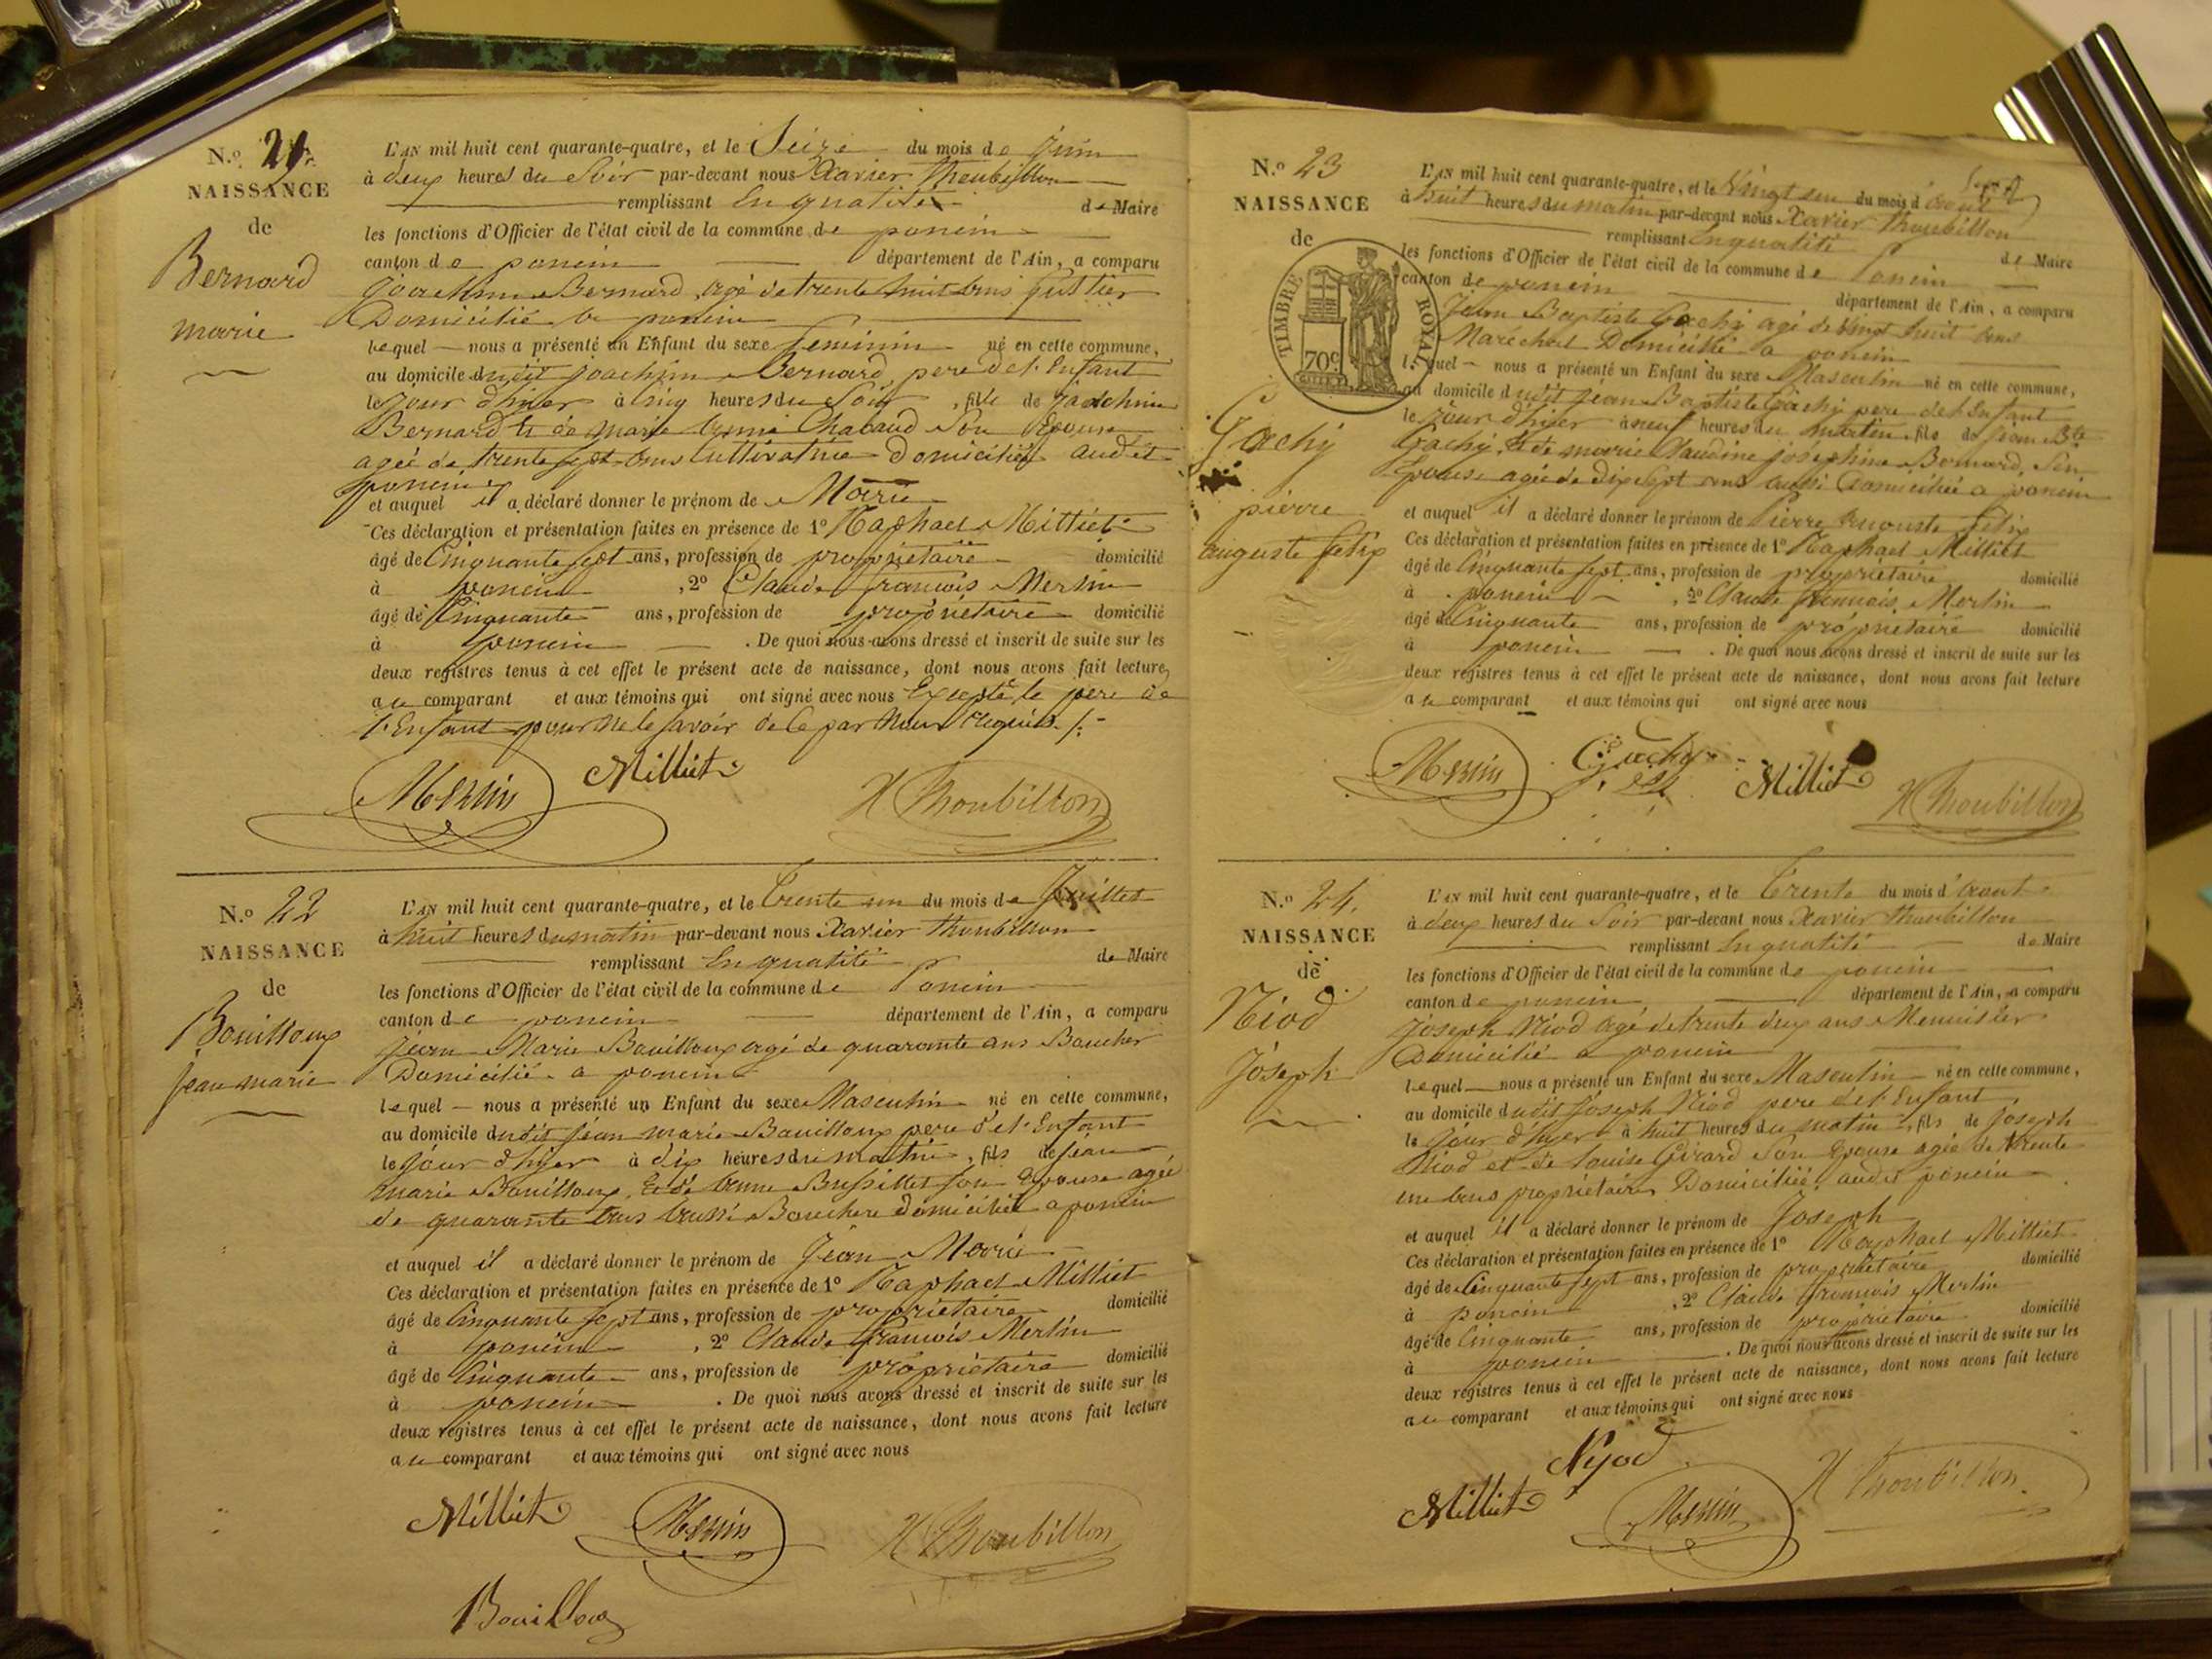 N.º 21
NAISSANCE
de
Bernard
marie
L'AN mil huit cent quarante-quatre, et le Seize du mois de Juin
à deux heures du Soir par-devant nous Xavier Thoubillon
remplissant En qualité de Maire
les fonctions d'Officier de l'état civil de la commune de poncin
canton de poncin département de l'Ain, a comparu
Joachim Bernard agé de trente huit ans
Domicilié a poncin
lequel nous a présenté un Enfant du sexe feminin né en cette commune,
au domicile dudit joachim Bernard pere de l'Enfant
le jour d'hier à cinq heures du Soir, fille de joachim
Bernard Et de marie Chabaud Son Epouse
agée de trente sept ans Cultivatrice Domiciliée audit
poncin
et auquel il a déclaré donner le prénom de Marie
Ces déclaration et présentation faites en présence de 1º Raphael Milliet
âgé de Cinquante sept ans, profession de propriétaire domicilié
à poncin, 2º Claude francois Merlin
âgé de Cinquante ans, profession de propriétaire domicilié
à poncin. De quoi nous avons dressé et inscrit de suite sur les
deux registres tenus à cet effet le présent acte de naissance, dont nous avons fait lecture
au comparant et aux témoins qui ont signé avec nous Excepté le pere de
l'Enfant pour ne le savoir de ce par Nous Requis
Merlin Milliet X Thoubillon
N.º 22
NAISSANCE
de
Bouilloux
jean marie
L'AN mil huit cent quarante-quatre, et le Trente un du mois de Juillet
à huit heures du matin par-devant nous Xavier Thoubillon
remplissant En qualité de Maire
les fonctions d'Officier de l'état civil de la commune de Poncin
canton de poncin département de l'Ain, a comparu
Jean Marie Bouilloux agé de quarante ans Boucher
Domicilié a poncin
lequel nous a présenté un Enfant du sexe Masculin né en cette commune,
au domicile dudit jean marie Bouilloux pere de l'Enfant
le jour d'hier à dix heures du matin, fils de jean
marie Bouilloux, Et de anne Bussillet son Epouse agée
de quarante ans aussi Bouchere domiciliée a poncin
et auquel il a déclaré donner le prénom de Jean Marie
Ces déclaration et présentation faites en présence de 1º Raphael Milliet
âgé de Cinquante sept ans, profession de propriétaire domicilié
à poncin, 2º Claude francois Merlin
âgé de Cinquante ans, profession de propriétaire domicilié
à poncin. De quoi nous avons dressé et inscrit de suite sur les
deux registres tenus à cet effet le présent acte de naissance, dont nous avons fait lecture
au comparant et aux témoins qui ont signé avec nous
Milliet Merlin X Thoubillon
Bouilloux
N.º 23
NAISSANCE
de
TIMBRE ROYAL
70c
Gachy
pierre
auguste felix
L'AN mil huit cent quarante-quatre, et le Vingt un du mois d'aout
à huit heures du matin par-devant nous Xavier Thoubillon
remplissant En qualité de Maire
les fonctions d'Officier de l'état civil de la commune de Poncin
canton de poncin département de l'Ain, a comparu
Jean Baptiste Gachy agé de Vingt huit ans
Maréchal Domicilié a poncin
lequel nous a présenté un Enfant du sexe Masculin né en cette commune,
au domicile dudit jean Baptiste Gachy pere de l'Enfant
le jour d'hier à neuf heures du matin, fils de jean Bte
Gachy, Et de marie Claudine josephine Bornard, Son
Epouse agée de dix sept ans aussi domiciliée a poncin
et auquel il a déclaré donner le prénom de Pierre auguste felix
Ces déclaration et présentation faites en présence de 1º Raphael Milliet
âgé de Cinquante sept ans, profession de propriétaire domicilié
à poncin, 2º Claude francois Merlin
âgé de Cinquante ans, profession de propriétaire domicilié
à poncin. De quoi nous avons dressé et inscrit de suite sur les
deux registres tenus à cet effet le présent acte de naissance, dont nous avons fait lecture
au comparant et aux témoins qui ont signé avec nous
Merlin Gachy Milliet X Thoubillon
N.º 24.
NAISSANCE
de
Niod
Joseph
L'AN mil huit cent quarante-quatre, et le Trente du mois d'aout
à deux heures du Soir par-devant nous Xavier Thoubillon
remplissant En qualité de Maire
les fonctions d'Officier de l'état civil de la commune de poncin
canton de poncin département de l'Ain, a comparu
Joseph Niod agé de trente deux ans Menuisier
Domicilié a poncin
lequel nous a présenté un Enfant du sexe Masculin né en cette commune,
au domicile dudit Joseph Niod pere de l'Enfant
le jour d'hyer à huit heures du matin, fils de Joseph
Niod et de Louise Girard Son Epouse agée de trente
un ans propriétaire Domiciliée audit poncin
et auquel il a déclaré donner le prénom de Joseph
Ces déclaration et présentation faites en présence de 1º Raphael Milliet
âgé de Cinquante sept ans, profession de propriétaire domicilié
à poncin, 2º Claude francois Merlin
âgé de Cinquante ans, profession de propriétaire domicilié
à poncin. De quoi nous avons dressé et inscrit de suite sur les
deux registres tenus à cet effet le présent acte de naissance, dont nous avons fait lecture
au comparant et aux témoins qui ont signé avec nous
Nyod
Milliet Merlin X Thoubillon